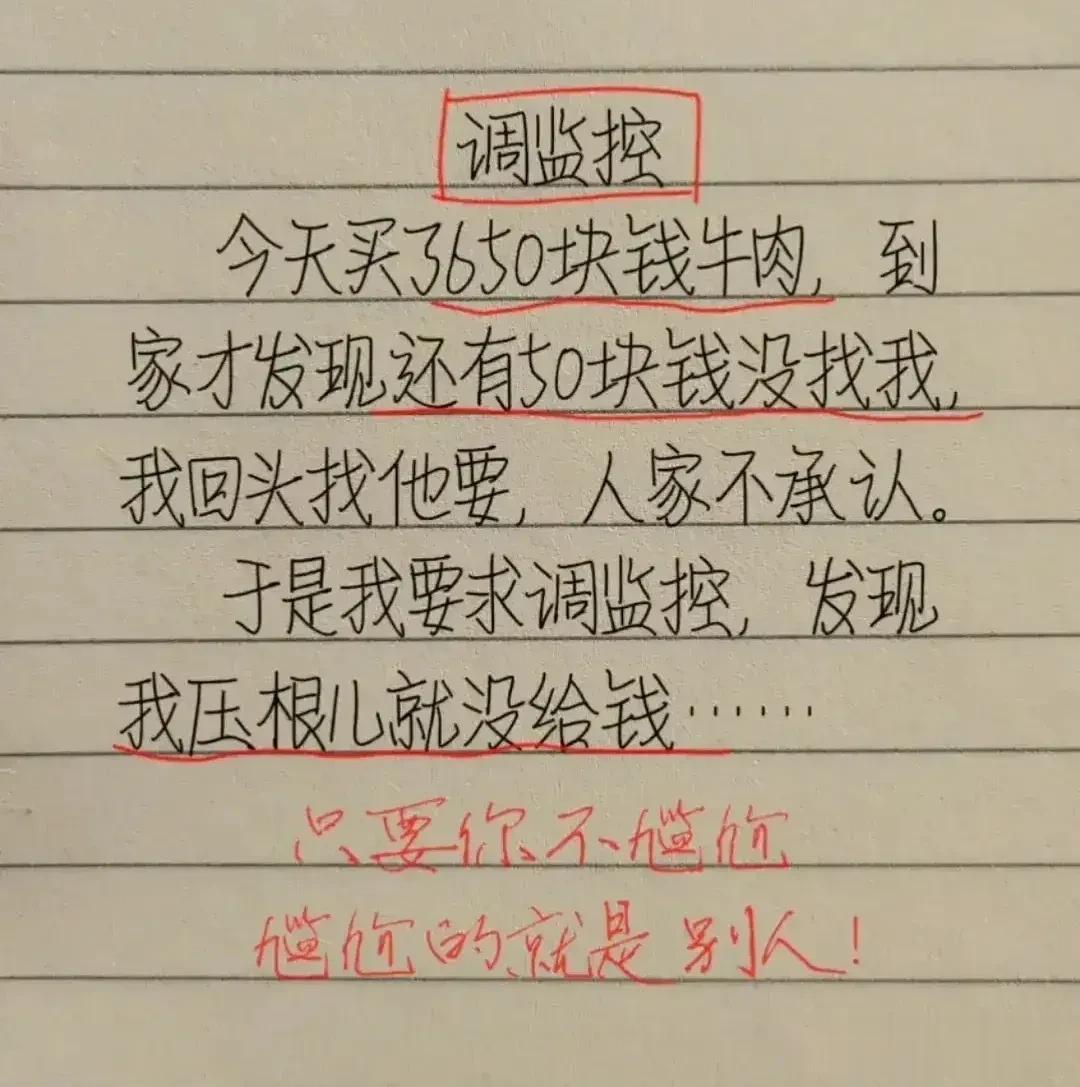 调监控
今天买了650块钱牛肉，到
家才发现还有50块钱没找我，
我回头找他要，人家不承认。
于是我要求调监控，发现
我压根儿就没给钱……
只要你不尴尬
尴尬的就是别人！